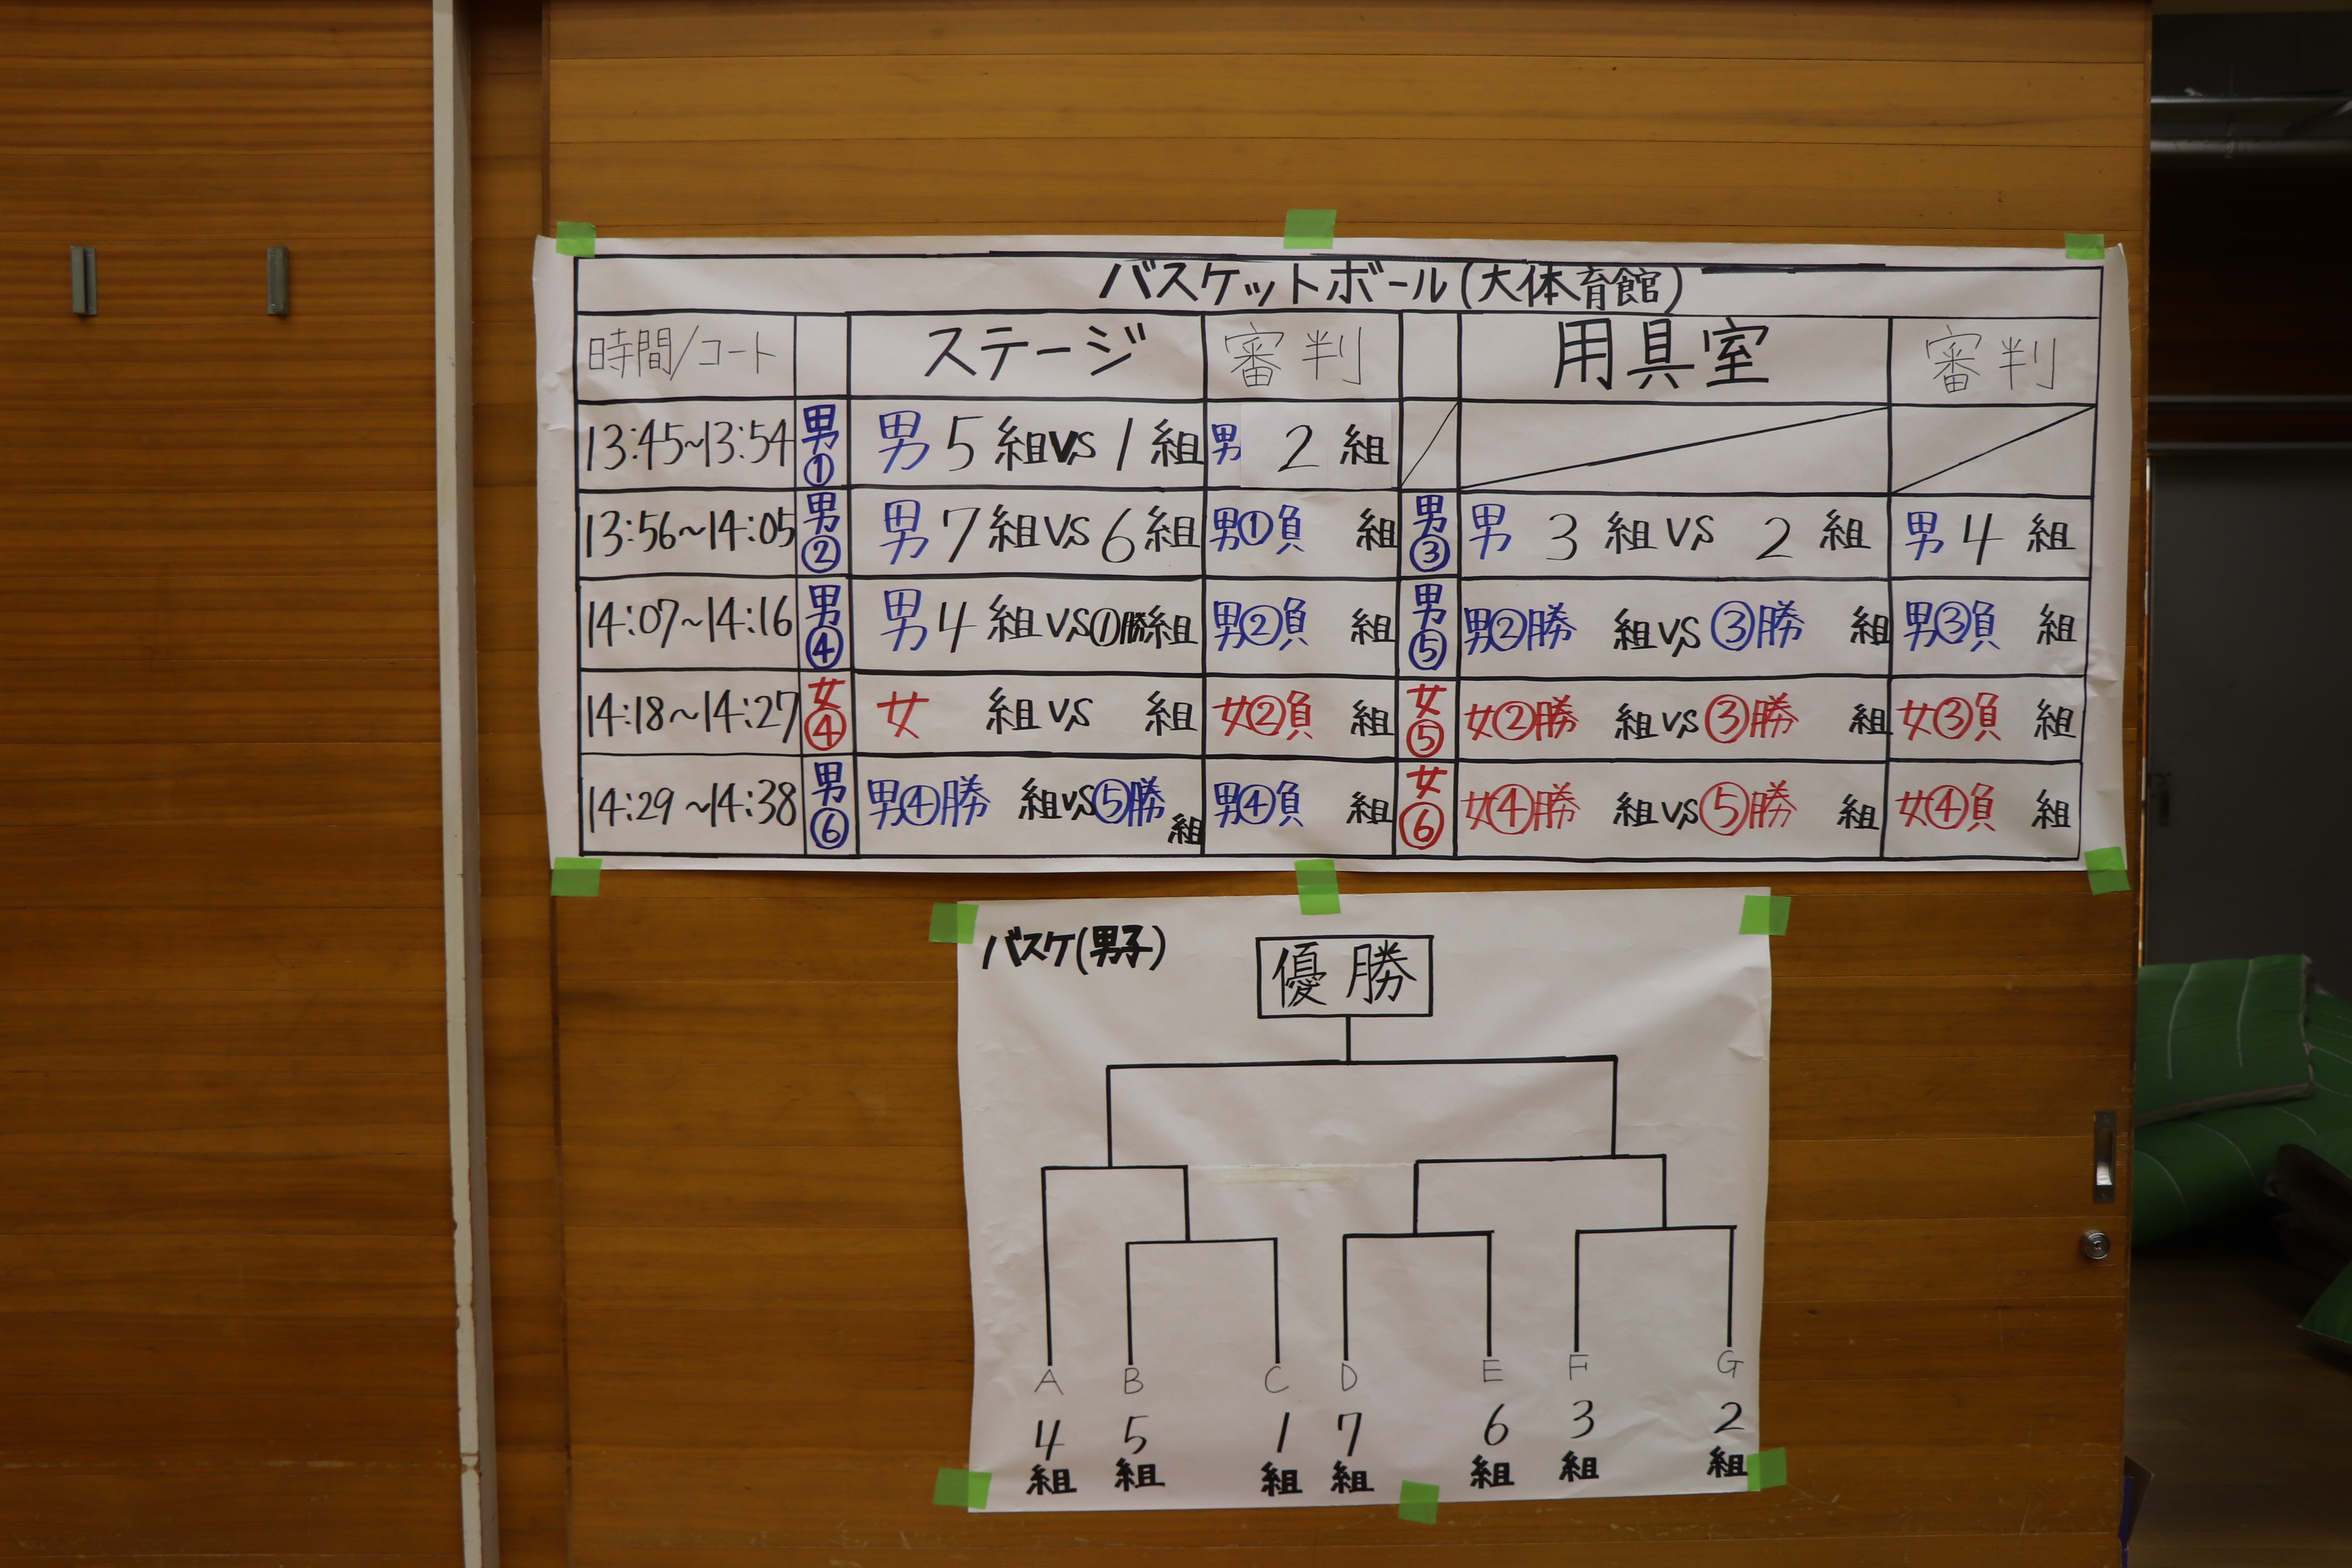 バスケットボール(大体育館)
時間/コート ステージ 審判 用具室 審判
13:45~13:54 男① 男 5 組 vs 1 組 男 2 組
13:56~14:05 男② 男 7 組 vs 6 組 男①負 組 男③ 男 3 組 vs 2 組 男 4 組
14:07~14:16 男④ 男 4 組 vs ①勝組 男②負 組 男⑤ 男②勝 組 vs ③勝 組 男③負 組
14:18~14:27 女④ 女 組 vs 組 女②負 組 女⑤ 女②勝 組 vs ③勝 組 女③負 組
14:29~14:38 男⑥ 男④勝 組 vs ⑤勝 組 男④負 組 女⑥ 女④勝 組 vs ⑤勝 組 女④負 組
バスケ(男子)
優勝
A B C D E F G
4 5 1 7 6 3 2
組 組 組 組 組 組 組